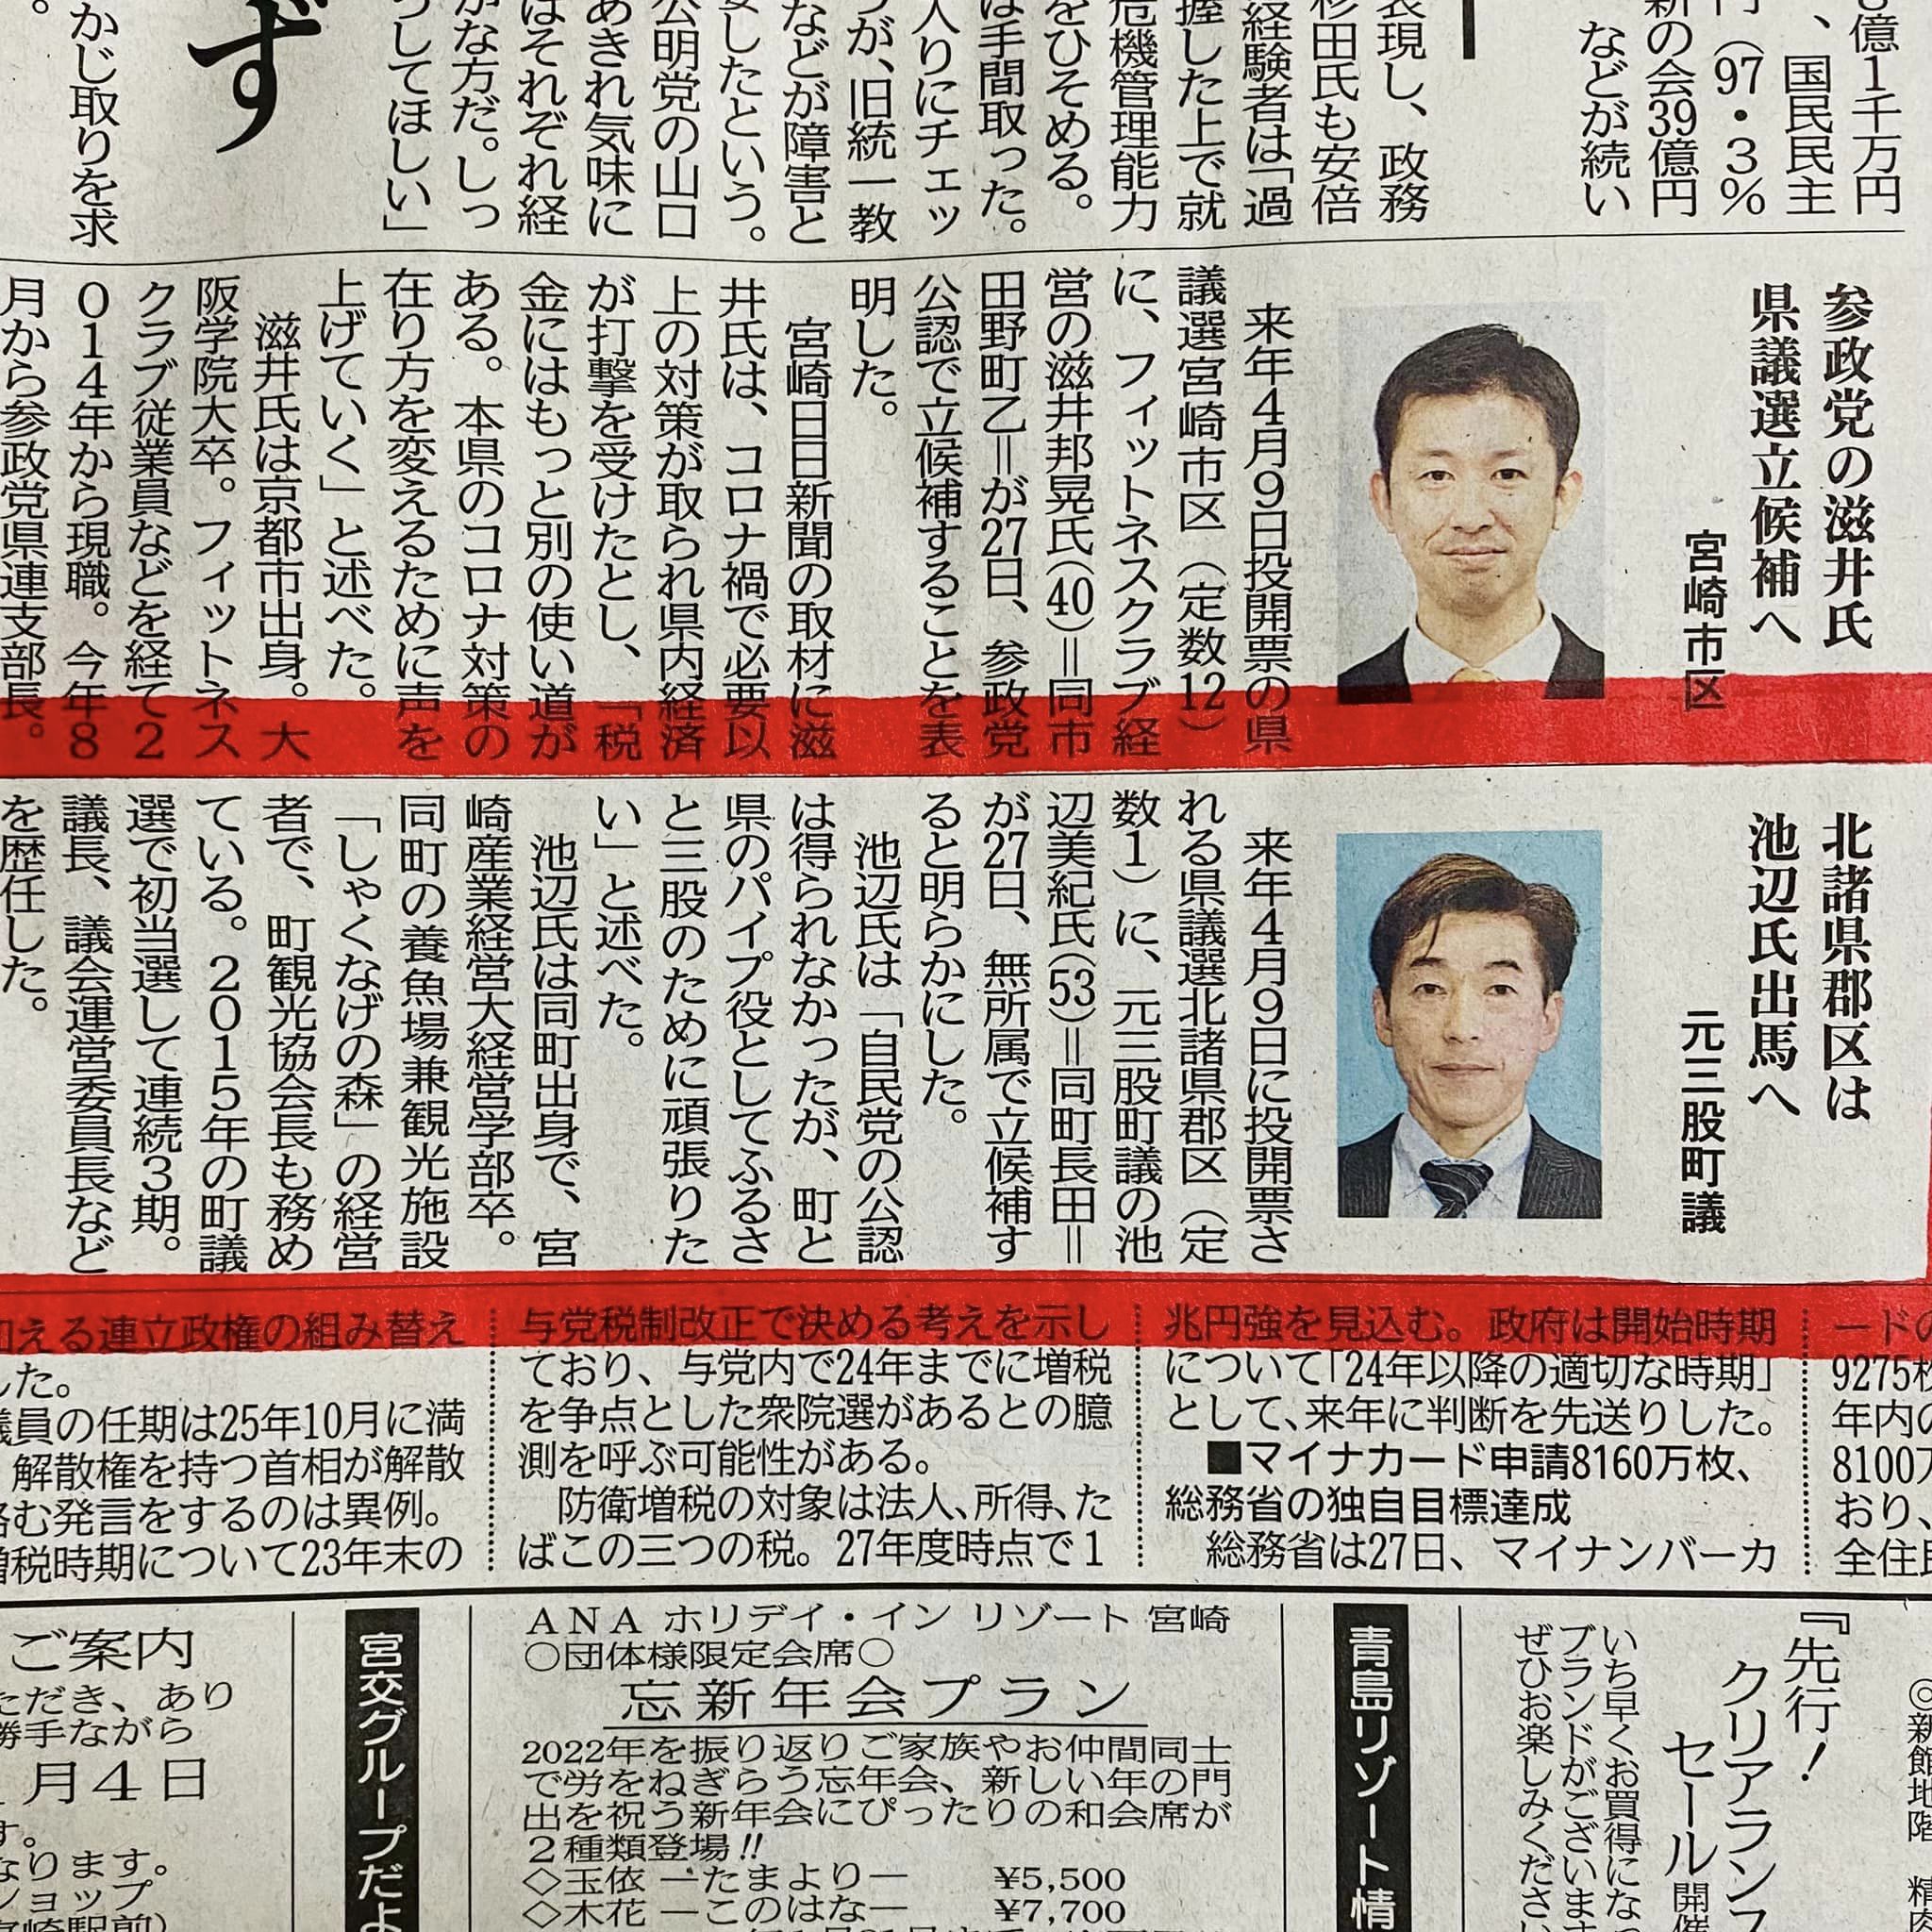 8億1千万円
、国民民主
円（97・3％
新の会39億円
などが続い
表現し、政務
杉田氏も安倍
経験者は「過
握した上で就
危機管理能力
をひそめる。
は手間取った。
入りにチェッ
が、旧統一教
などが障害と
したという。
公明党の山口
あきれ気味に
はそれぞれ経
かな方だ。しっ
うしてほしい」
ず
かじ取りを求
。
参政党の滋井氏
県議選立候補へ
宮崎市区
来年4月9日投開票の県
議選宮崎市区（定数12）
に、フィットネスクラブ経
営の滋井邦晃氏(40)＝同市
田野町乙＝が27日、参政党
公認で立候補することを表
明した。
宮崎日日新聞の取材に滋
井氏は、コロナ禍で必要以
上の対策が取られ県内経済
が打撃を受けたとし、「税
金にはもっと別の使い道が
ある。本県のコロナ対策の
在り方を変えるために声を
上げていく」と述べた。
滋井氏は京都市出身。大
阪学院大卒。フィットネス
クラブ従業員などを経て2
014年から現職。今年8
月から参政党県連支部長。
北諸県郡区は
池辺氏出馬へ
元三股町議
来年4月9日に投開票さ
れる県議選北諸県郡区（定
数1）に、元三股町議の池
辺美紀氏(53)＝同町長田＝
が27日、無所属で立候補す
ると明らかにした。
池辺氏は「自民党の公認
は得られなかったが、町と
県のパイプ役としてふるさ
と三股のために頑張りた
い」と述べた。
池辺氏は同町出身で、宮
崎産業経営大経営学部卒。
同町の養魚場兼観光施設
「しゃくなげの森」の経営
者で、町観光協会長も務め
ている。2015年の町議
選で初当選して連続3期。
議長、議会運営委員長など
を歴任した。
加える連立政権の組み替え
した。
議員の任期は25年10月に満
解散権を持つ首相が解散
絡む発言をするのは異例。
増税時期について23年末の
与党税制改正で決める考えを示し
ており、与党内で24年までに増税
を争点とした衆院選があるとの臆
測を呼ぶ可能性がある。
防衛増税の対象は法人、所得、た
ばこの三つの税。27年度時点で1
兆円強を見込む。政府は開始時期
について「24年以降の適切な時期」
として、来年に判断を先送りした。
■マイナカード申請8160万枚、
総務省の独自目標達成
総務省は27日、マイナンバーカ
ードの
9275枚
年内の
8100万
おり、
全住民
ご案内
ただき、あり
勝手ながら
月4日
す。
なります。
ショップ
宮崎駅前)
宮交グループだよ
ANA ホリデイ・イン リゾート 宮崎
○団体様限定会席○
忘新年会プラン
2022年を振り返りご家族やお仲間同士
で労をねぎらう忘年会、新しい年の門
出を祝う新年会にぴったりの和会席が
2種類登場!!
◇玉依 ―たまより― ¥5,500
◇木花 ―このはな― ¥7,700
青島リゾート情
『先行！
クリアランス
セール開催
いち早くお買得になっ
ブランドがございます
ぜひお楽しみください
◎新館地階